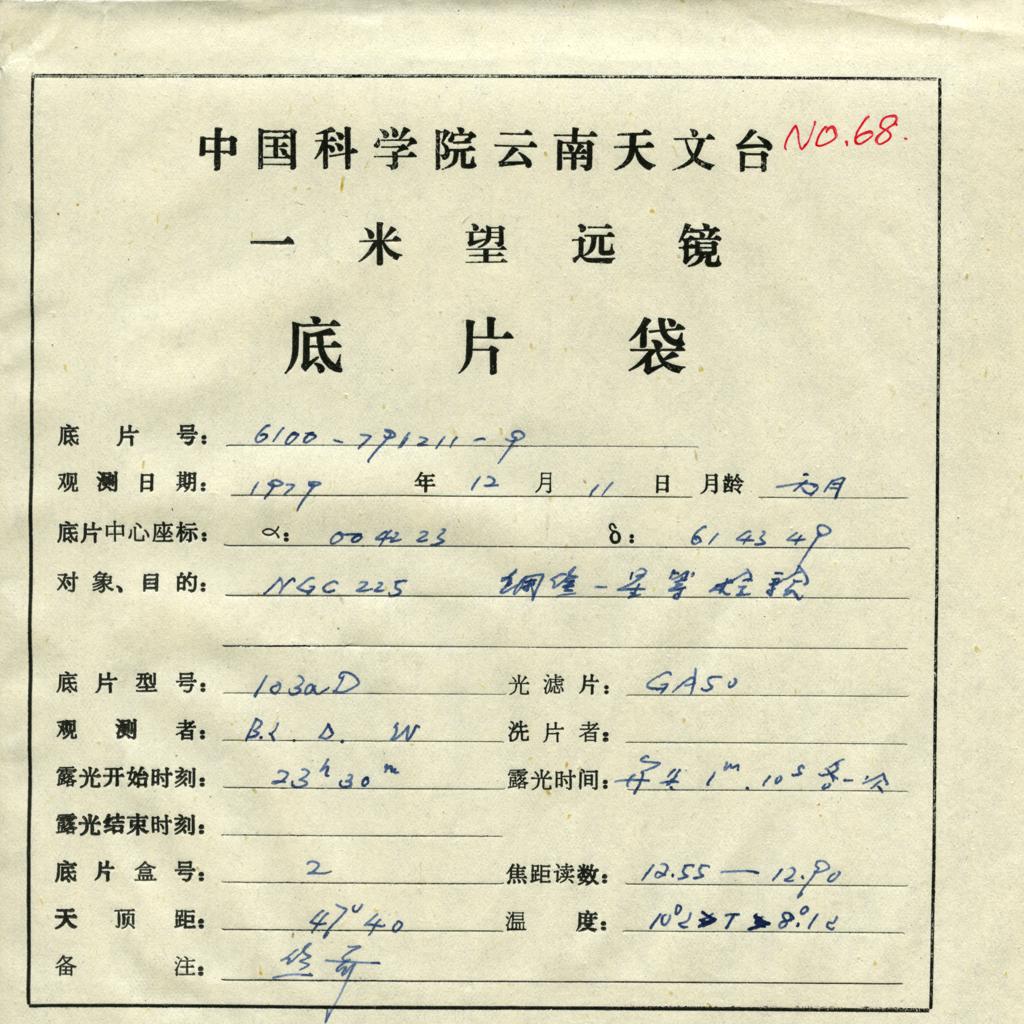 中国科学院云南天文台 NO.68.
一米望远镜
底片袋
底片号: 6100-791211-9
观测日期: 1979 年 12 月 11 日 月龄
底片中心座标: α: 00 42 23 δ: 61 43 49
对象、目的: NGC 225 星等
底片型号: 103aD 光滤片: GA50
观测者: B.L. D. W 洗片者:
露光开始时刻: 23h 30m 露光时间: 1m. 10s 各一次
露光结束时刻:
底片盒号: 2 焦距读数: 12.55 — 12.90
天顶距: 47° 40 温度:
备注: